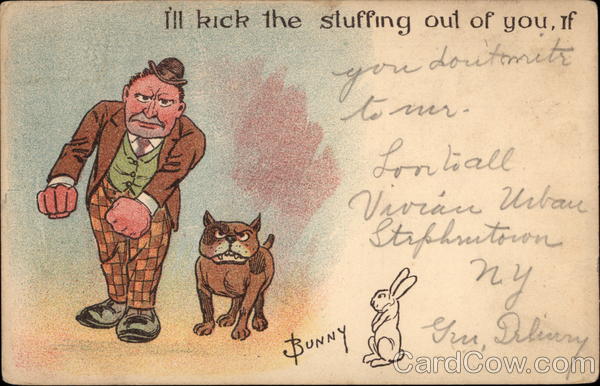 I'll kick the stuffing out of you, If
you don't write
to me.
Love to all
Vivian Urban
Stephentown
N Y
Gen, Delivery
BUNNY
CardCow.com